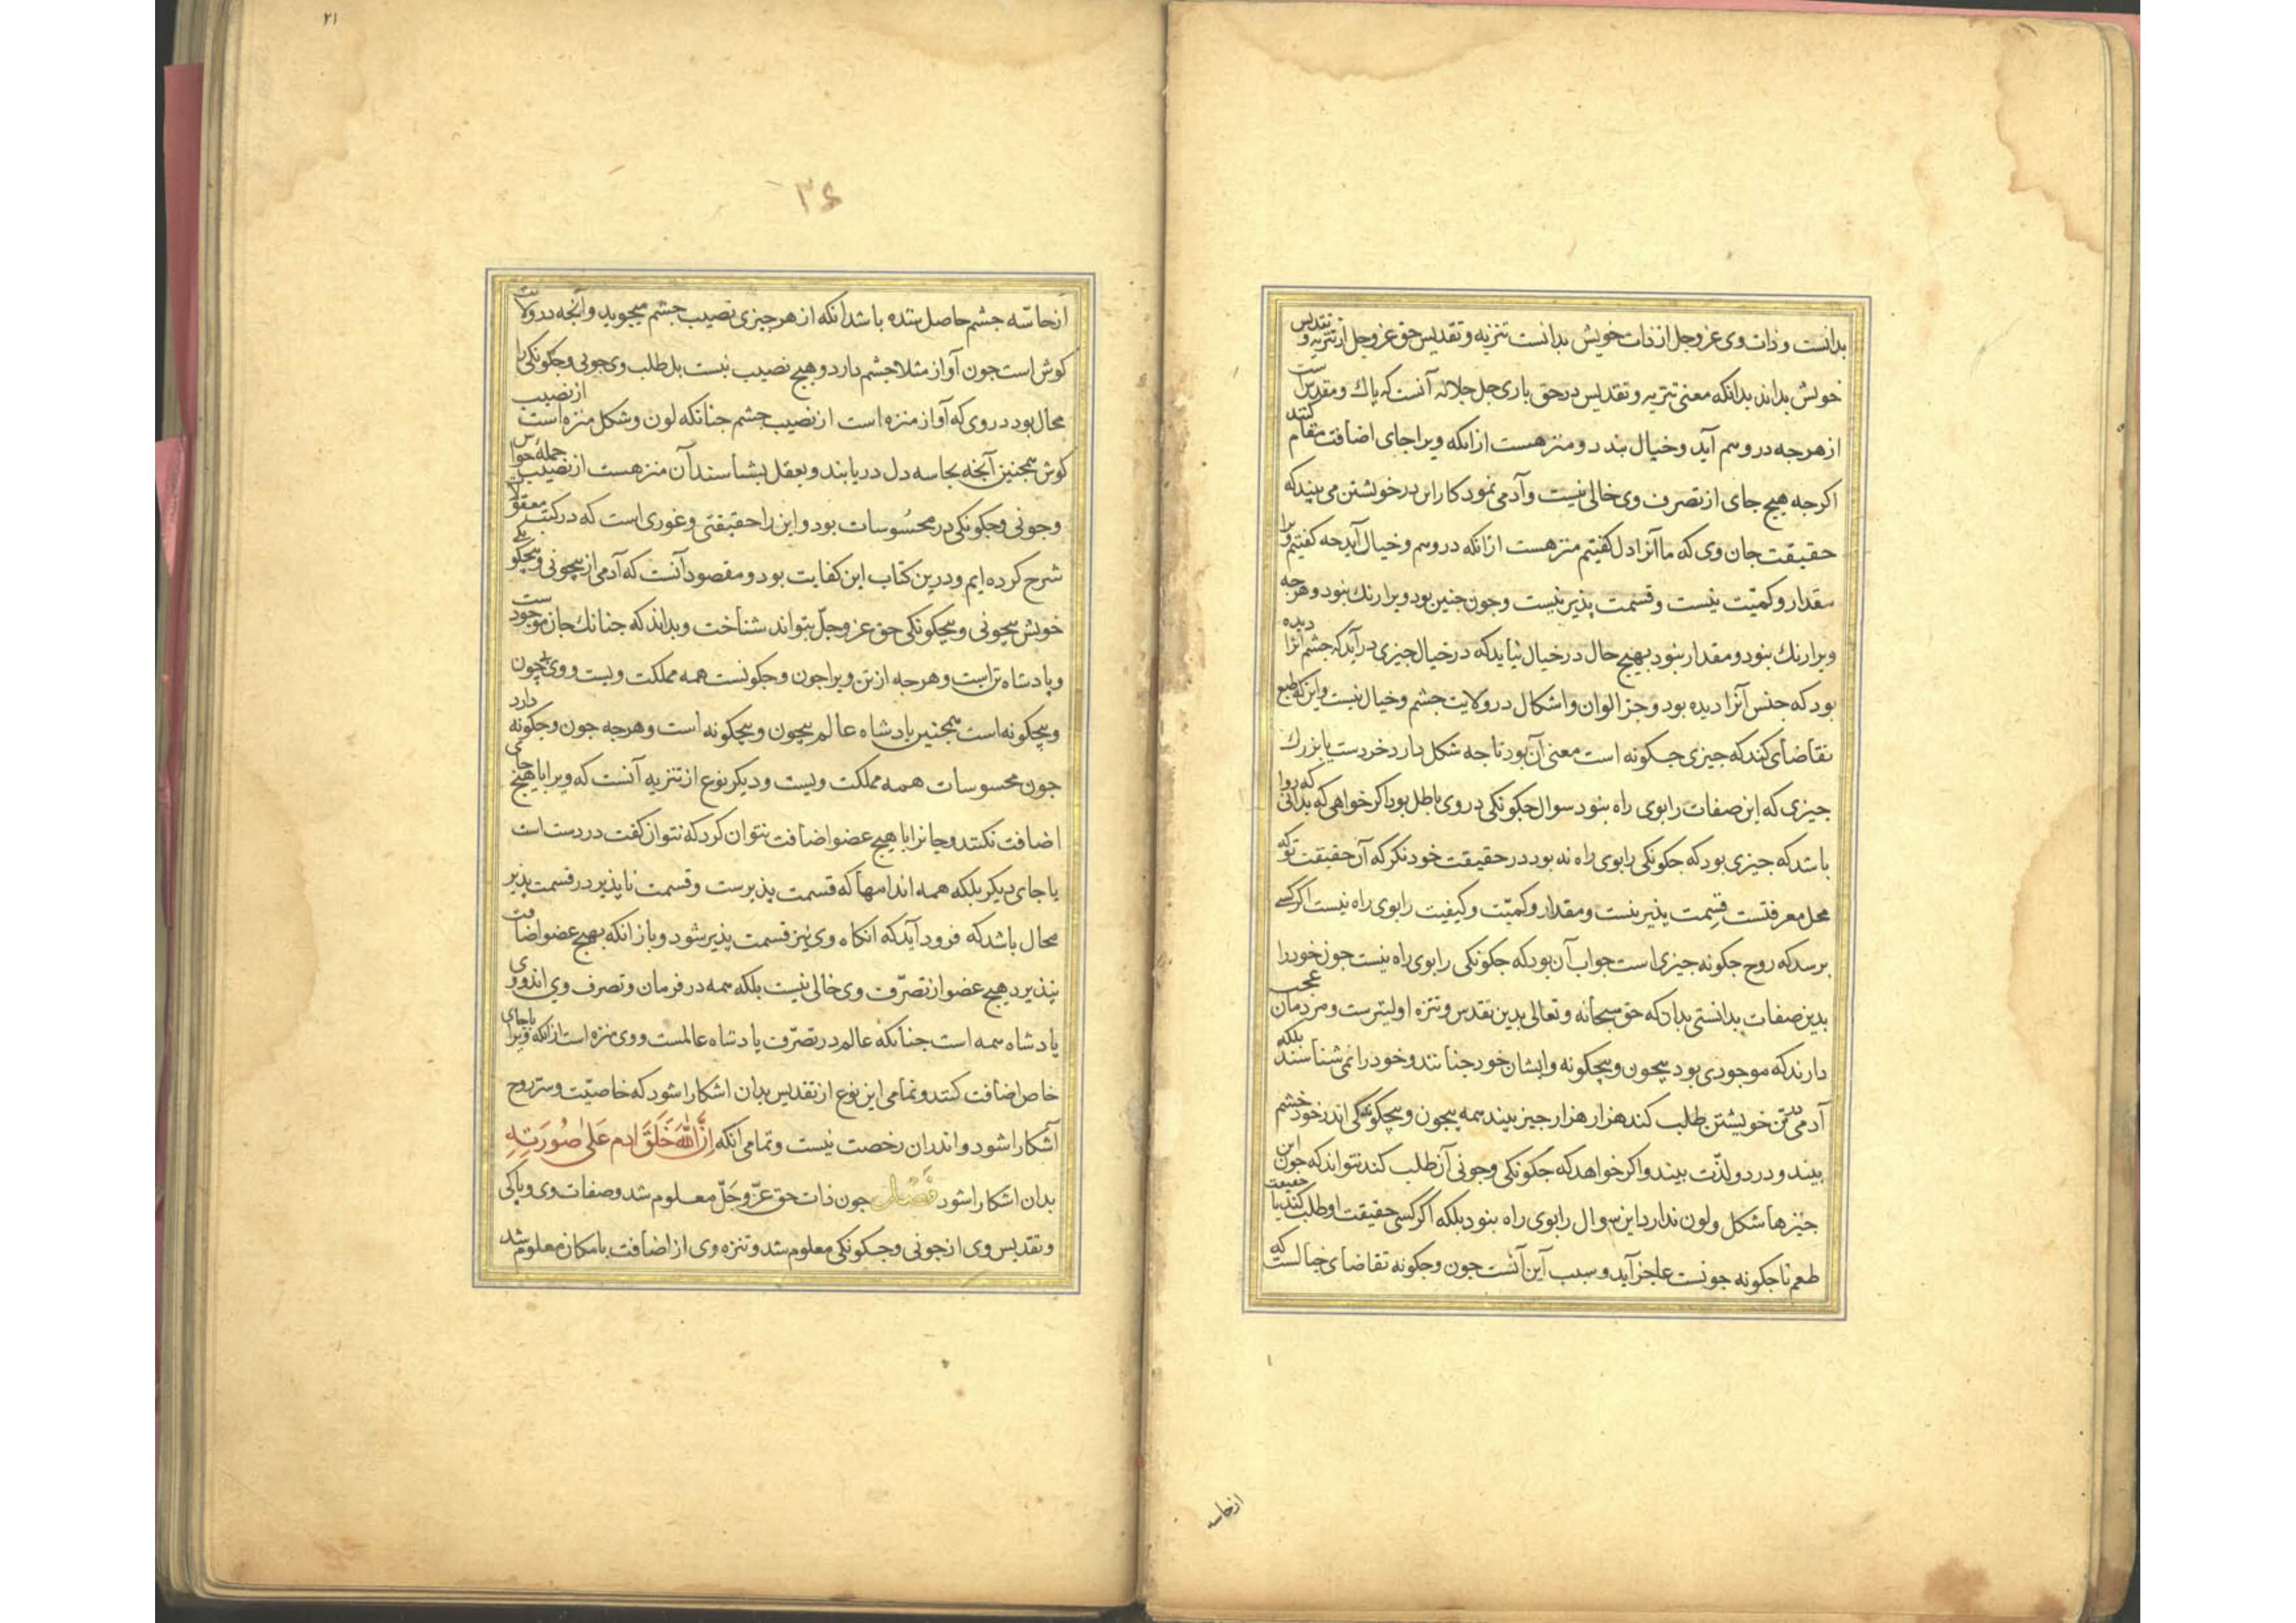 بدانست و ذات وی عز وجل از ذات خویش بدانست تنزیه و تقدیس حق عز وجل از تنزیه و تقدیس
خویش بداند بدانکه معنی تنزیه و تقدیس در حق باری جل جلاله آنست که پاک و مقدس است
از هرجه در وهم آید و خیال بندد و منزهست ازانکه ویرا جای اضافت کنند مقام
اکرجه هیچ جای از تصرف وی خالی نیست و آدمی نمودکار این در خویشتن می بیند که
حقیقت جان وی که ما آنرا دل کفتیم منزهست ازانکه در وهم و خیال آید جه کفتیم ویرا
مقدار و کمیّت نیست و قسمت پذیر نیست و جون جنین بود ویرا رنک نبود و هرجه
ویرا رنک نبود و مقدار نبود بهیچ حال در خیال نیاید که در خیال جیزی درآید که جشم آنرا دیده
بود که جنس آنرا دیده بود و جز الوان و اشکال در ولایت جشم و خیال نیست و این که طبع
تقاضای کند که جیزی جکونه است معنی آن بود تا جه شکل دارد خردست یا بزرک
جیزی که این صفات را بوی راه نبود سوال جکونکی در وی باطل بود اکر خواهی که بدانی که روا
باشد که جیزی بود که جکونکی را بوی راه نه بود در حقیقت خود نکر که آن حقیقت تو که
محل معرفتست قسمت پذیر نیست و مقدار و کمیّت و کیفیت را بوی راه نیست اکر کسی
برسد که روح جکونه جیزی است جواب آن بود که جکونکی را بوی راه نیست جون خود را
بدین صفات بدانستی بدان که حق سبحانه و تعالی بدین تقدس و تنزه اولیترست و مردمان عجب
دارند که موجودی بود بیچون و بیچکونه و ایشان خود جنانند و خود را نمی شناسند بلکه
آدمی در تن خویشتن طلب کند هزار هزار جیز بیند همه بیچون و بیچکونکی اندر خود خشم
بیند و درد و لذّت بیند و اکر خواهد که جکونکی و جونی آن طلب کند نتواند که جون این
جیزها شکل و لون ندارد این سوال را بوی راه نبود بلکه اکر کسی حقیقت او طلب کند یا حقیقت
طعم تا جکونه جونست عاجز آید و سبب این آنست جون و جکونه تقاضای خیالست که
ازحاسه
۲۱
۳۶
ازحاسّه جشم حاصل شده باشد انکه از هر جیزی نصیب جشم میجوید و آنجه در ولایت
کوش است جون آواز مثلا جشم دارد و هیچ نصیب نیست بل طلب وی جونی و جکونکی را
محال بود در وی که آواز منزه است از نصیب جشم جنانکه لون و شکل منزه است از نصیب
کوش همجنین آنجه بحاسه دل دریابند و بعقل بشناسند آن منزهست از نصیب جمله حواس
و جونی و جکونکی در محسُوسات بود و این را حقیقتی و غوری است که در کتب معقولات
شرح کرده ایم و درین کتاب این کفایت بود و مقصود آنست که آدمی از بیچونی و بیچکونکی
خویش بیچونی و بیچکونکی حق عز وجلّ بتواند شناخت و بداند که جنانک جان موجودست
و پادشاه تن است و هرجه از تن ویرا جون و جکونست همه مملکت ویست و وی بیچون
و بیچکونه است همجنین بادشاه عالم بیچون و بیچکونه است و هرجه جون و جکونه دارد
جون محسوسات همه مملکت ویست و دیکر نوع از تنزیه آنست که ویرا با هیچ جای
اضافت نکنند و جانرا با هیچ عضو اضافت نتوان کرد که نتوان کفت در دست است
یا جای دیکر بلکه همه اندامهأ که قسمت پذیرست و قسمت ناپذیر در قسمت پذیر
محال باشد که فرود آید که انکاه وی نیز قسمت پذیر شود و بازانکه بهیچ عضو اضافت
نپذیرد هیچ عضو از تصرّف وی خالی نیست بلکه همه در فرمان و تصرف وی اند و وی
پادشاه همه است جنانکه عالم در تصرّف پادشاه عالمست و وی منزه است ازانکه ویرا باجای
خاص اضافت کنند و تمامی این نوع از تقدیس بدان اشکارا شود که خاصیّت و سرّ روح
آشکارا شود و اندران رخصت نیست و تمامی انکه اِنَّ اللّٰهَ خَلَقَ ادم عَلیٰ صُورَتِهِ
بدان اشکارا شود فَصْل جون ذات حق عزّ وجَلّ معلوم شد و صفات وی و پاکی
و تقدیس وی از جونی و جکونکی معلوم شد و تنزه وی از اضافت با مکان معلوم شد